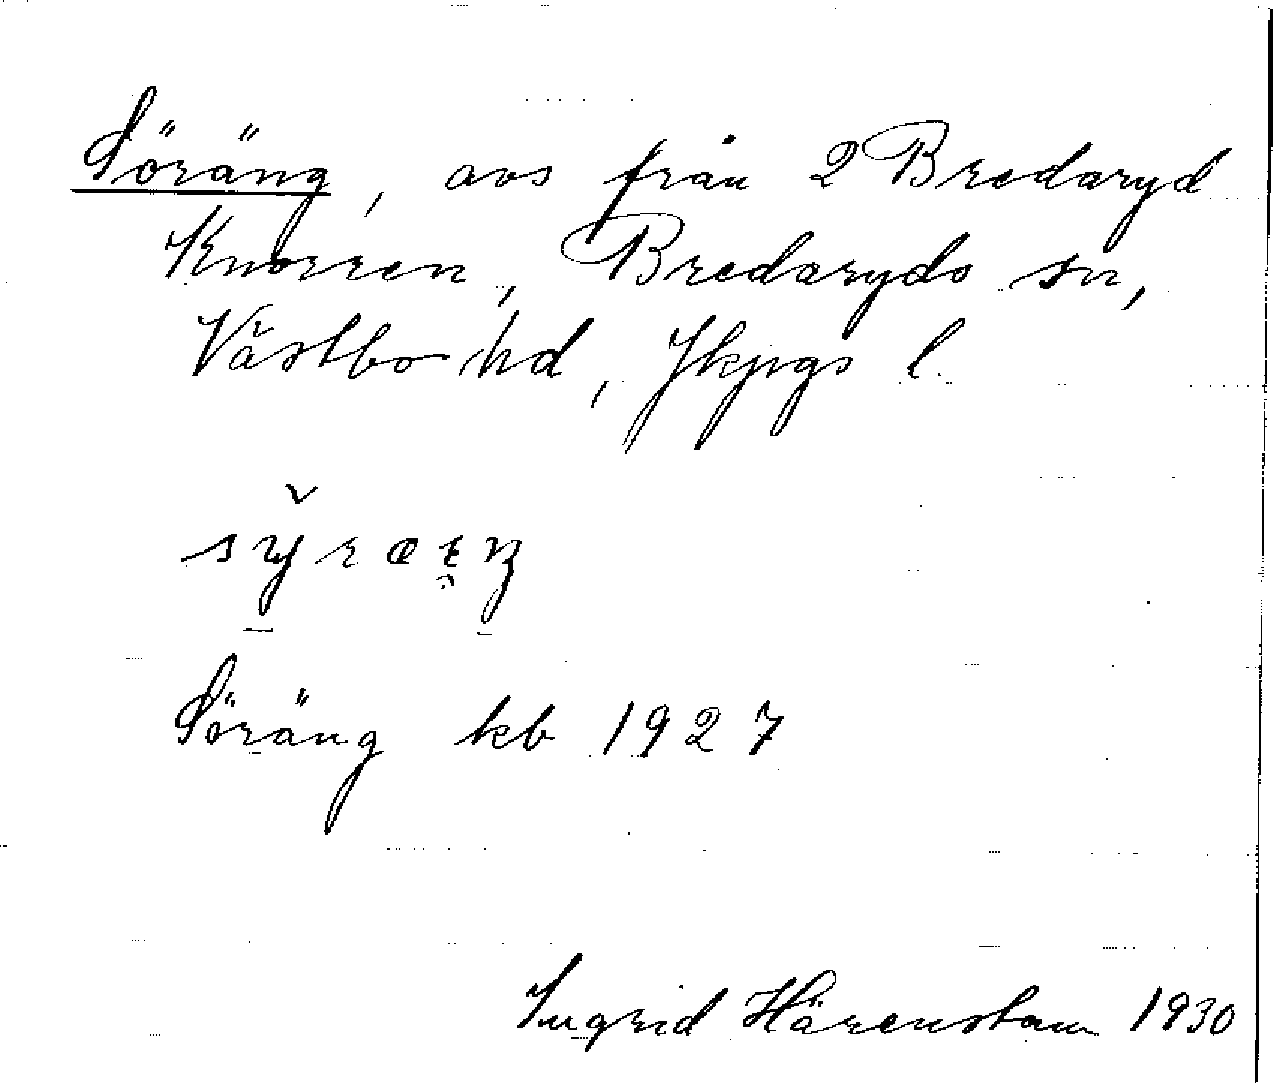 Söräng, avs från 2 Bredaryd
Knorren, Bredaryds sn,
Västbo hd, Jkpgs l.
Söräng kb 1927
Ingrid Härenstam 1930